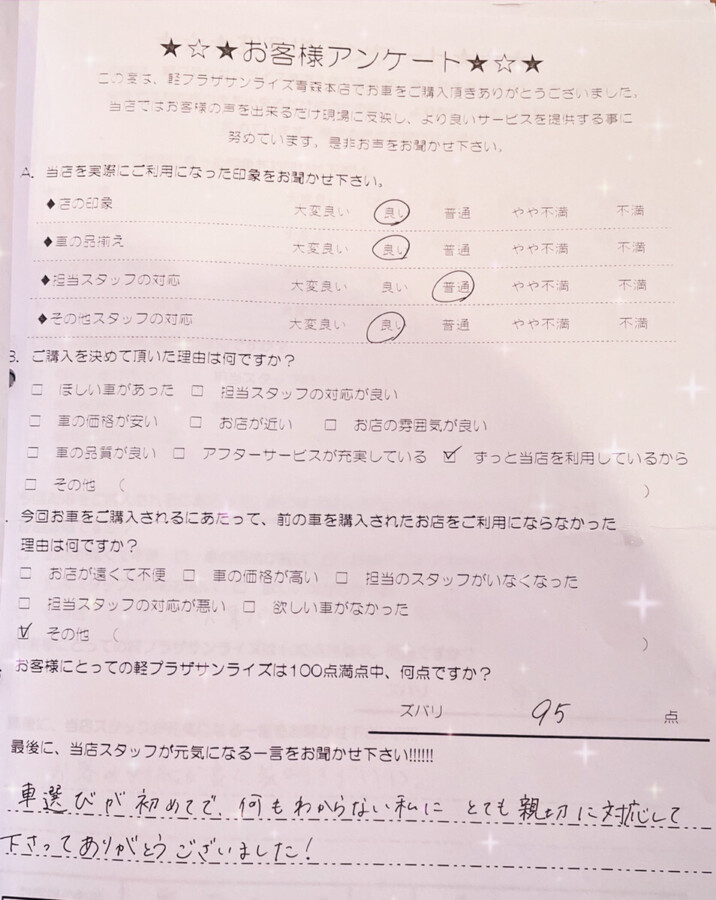 ★☆★お客様アンケート★☆★
この度は、軽プラザサンライズ青森本店でお車をご購入頂きありがとうございました。
当店ではお客様の声を出来るだけ現場に反映し、より良いサービスを提供する事に
努めています。是非お声をお聞かせ下さい。
A. 当店を実際にご利用になった印象をお聞かせ下さい。
◆店の印象 大変良い 良い 普通 やや不満 不満
◆車の品揃え 大変良い 良い 普通 やや不満 不満
◆担当スタッフの対応 大変良い 良い 普通 やや不満 不満
◆その他スタッフの対応 大変良い 良い 普通 やや不満 不満
B. ご購入を決めて頂いた理由は何ですか？
□ ほしい車があった □ 担当スタッフの対応が良い
□ 車の価格が安い □ お店が近い □ お店の雰囲気が良い
□ 車の品質が良い □ アフターサービスが充実している ☑ ずっと当店を利用しているから
□ その他 （ ）
. 今回お車をご購入されるにあたって、前の車を購入されたお店をご利用にならなかった
理由は何ですか？
□ お店が遠くて不便 □ 車の価格が高い □ 担当のスタッフがいなくなった
□ 担当スタッフの対応が悪い □ 欲しい車がなかった
☑ その他 （ ）
. お客様にとっての軽プラザサンライズは100点満点中、何点ですか？
ズバリ 95 点
最後に、当店スタッフが元気になる一言をお聞かせ下さい!!!!!!
車選びが初めてで、何もわからない私に とても親切に対応して
下さってありがとうございました！